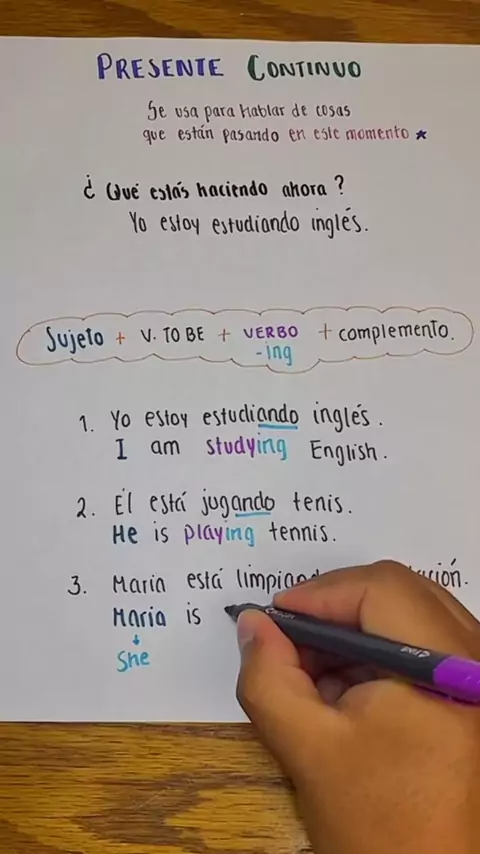 PRESENTE CONTINUO
Se usa para hablar de cosas
que están pasando en este momento ★
¿ Qué estás haciendo ahora ?
Yo estoy estudiando inglés.
Sujeto + V. TO BE + VERBO + complemento.
-ing
1. Yo estoy estudiando inglés.
I am studying English.
2. Él está jugando tenis.
He is playing tennis.
3. María está
María is
She